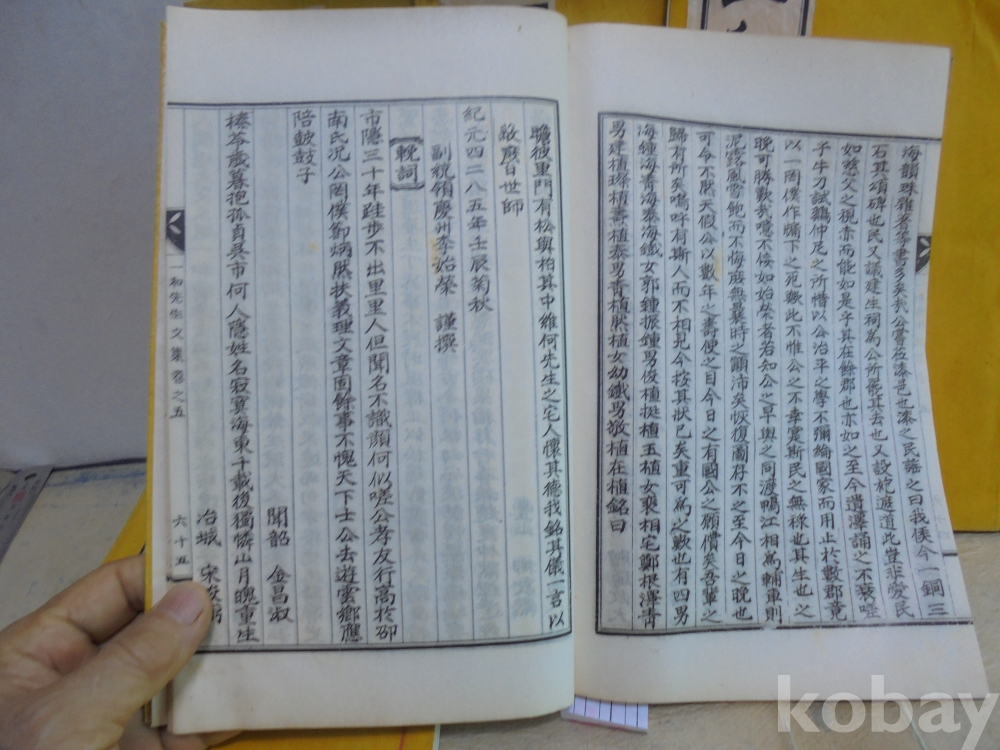 海韻珠雜著等書多矣我公嘗莅漆邑也漆之民謠之曰我侯今一銅三
石其頌碑也民又議建生祠爲公所 其去也又設祀遮道此豈非愛民
如慈父之視赤而能如是乎其在餘郡也亦如之至今遺澤誦之不衰嗟
乎牛刀試鷄仲尼之所惜以公治平之學不彌綸國家而用止於數郡竟
以一罔僕作 下之死歟此不惟公之不幸寔斯民之無祿也其生也之
晚可勝歎哉噫不佞如始榮者若知公之早與之同渡鴨江相爲輔車則
泥露風雪飽而不悔庶無曩時之顚沛矣恢復圖存不之至今日之晩也
可今不厭天假公以數年之壽使之目今日之有國公之願償矣吾輩之
歸有所矣嗚呼有斯人而不相見今按其狀已矣重可爲之歎也有四男
海鍾海靑海泰海鐵女郭鍾振鍾男俊植挺植五植女裵相宅鄭 澤靑
男建植璨植壽植泰男靑植 植女幼鐵男敬植在植銘曰
瞻彼里門有松與柏其中維何先生之宅人懷其德我銘其儀一言以
敬 百世師
紀元四二八五年壬辰菊秋
副祝領慶州李始榮 謹撰
【輓詞】
市隱三十年跬步不出里里人但聞名不識顔何似嗟公孝友行高於邵
南氏況公罔僕節炳然扶義理文章固餘事不愧天下士公去遊雲鄉應
陪皷鼓子
聞韶 金昌淑
榛苓歲暮抱孤貞吳市何人隱姓名寂寞海東千載後獨憐山月魄重生
冶城 宋
一和先生文集卷之五
六十五
kobay